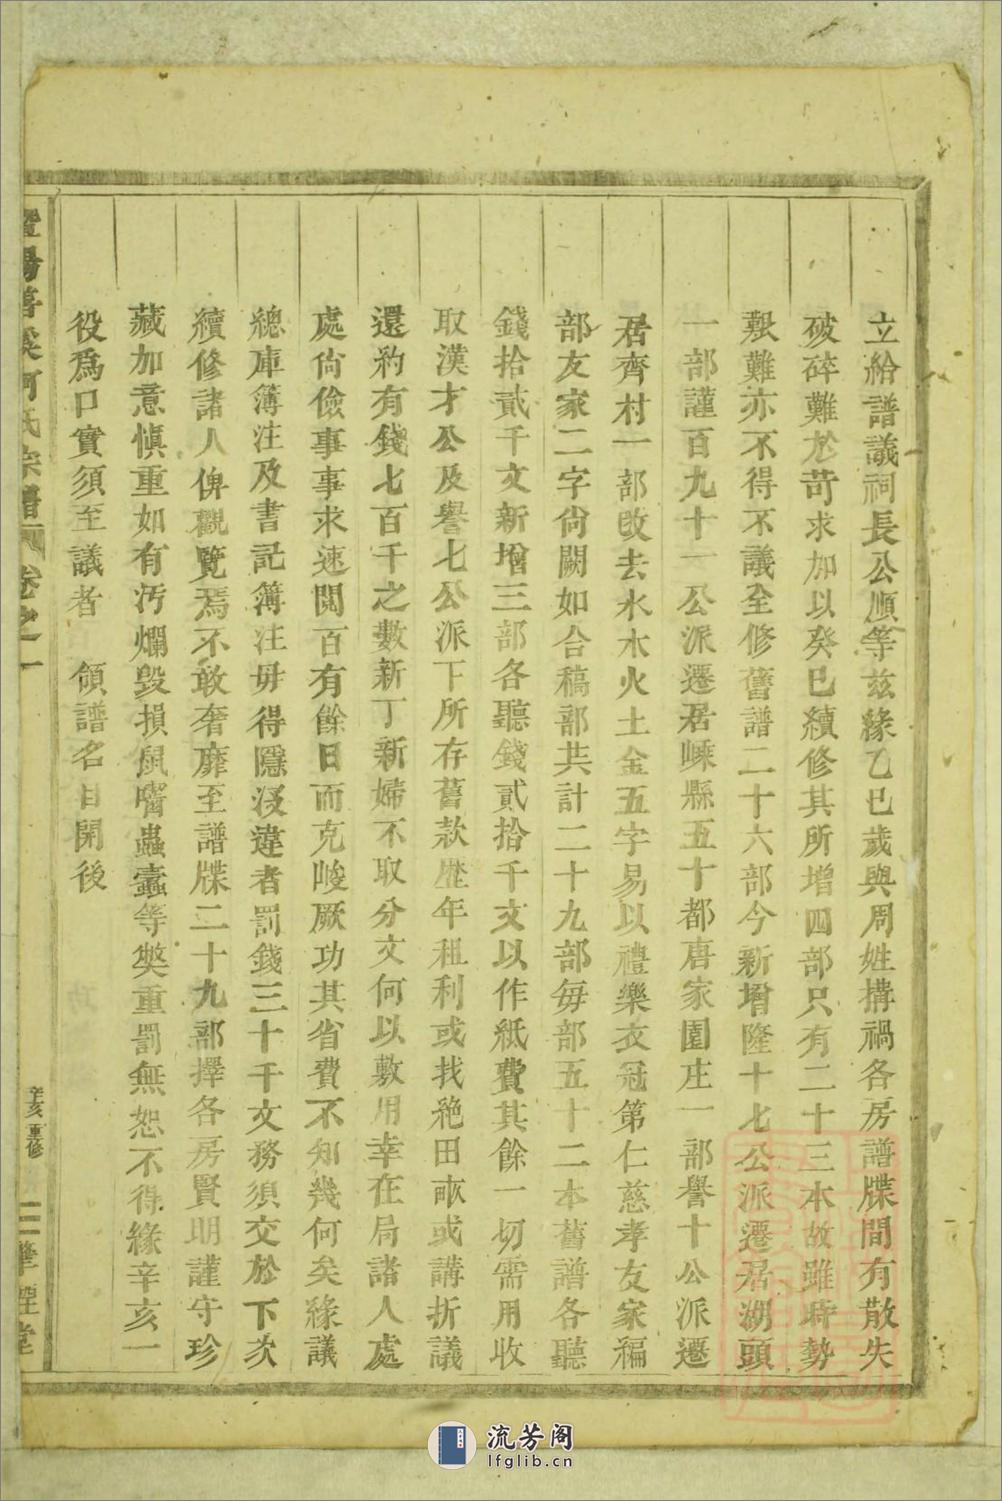 立給譜議祠長公順等玆緣乙巳歲與周姓搆禍各房譜牒間有散失
破碎難尤苛求加以癸巳續修其所增四部只有二十三本故雖時勢
艱難亦不得不議至修舊譜二十六部今新增隆十七公派遷居湖頭
一部謹百九十一公派遷居嵊縣五十都唐家園庄一部譽十公派遷
居齊村一部改去水木火土金五字易以禮樂衣冠第仁慈孝友家編
部友家二字尙闕如合稿部共計二十九部每部五十二本舊譜各聽
錢拾貳千文新增三部各聽錢貳拾千文以作紙費其餘一切需用收
取漢才公及譽七公派下所存舊款歷年租利或找絶田畝或講折議
還約有錢七百千之數新丁新婦不取分文何以敷用幸在局諸人處
處尙儉事事求速閱百有餘日而克峻厥功其省費不知幾何矣緣議
總庫簿注及書記簿注毋得隱沒違者罰錢三十千文務須交於下次
續修諸人俾觀覽焉不敢奢靡至譜牒二十九部擇各房賢明謹守珍
藏加意愼重如有汚爛毀損鼠嚙蟲蠹等獘重罰無恕不得緣辛亥一
役爲口實須至議者　領譜名目開後
暨陽善溪何氏宗譜　卷之一　辛亥重修　三肇經堂
流芳阁
lfglib.cn